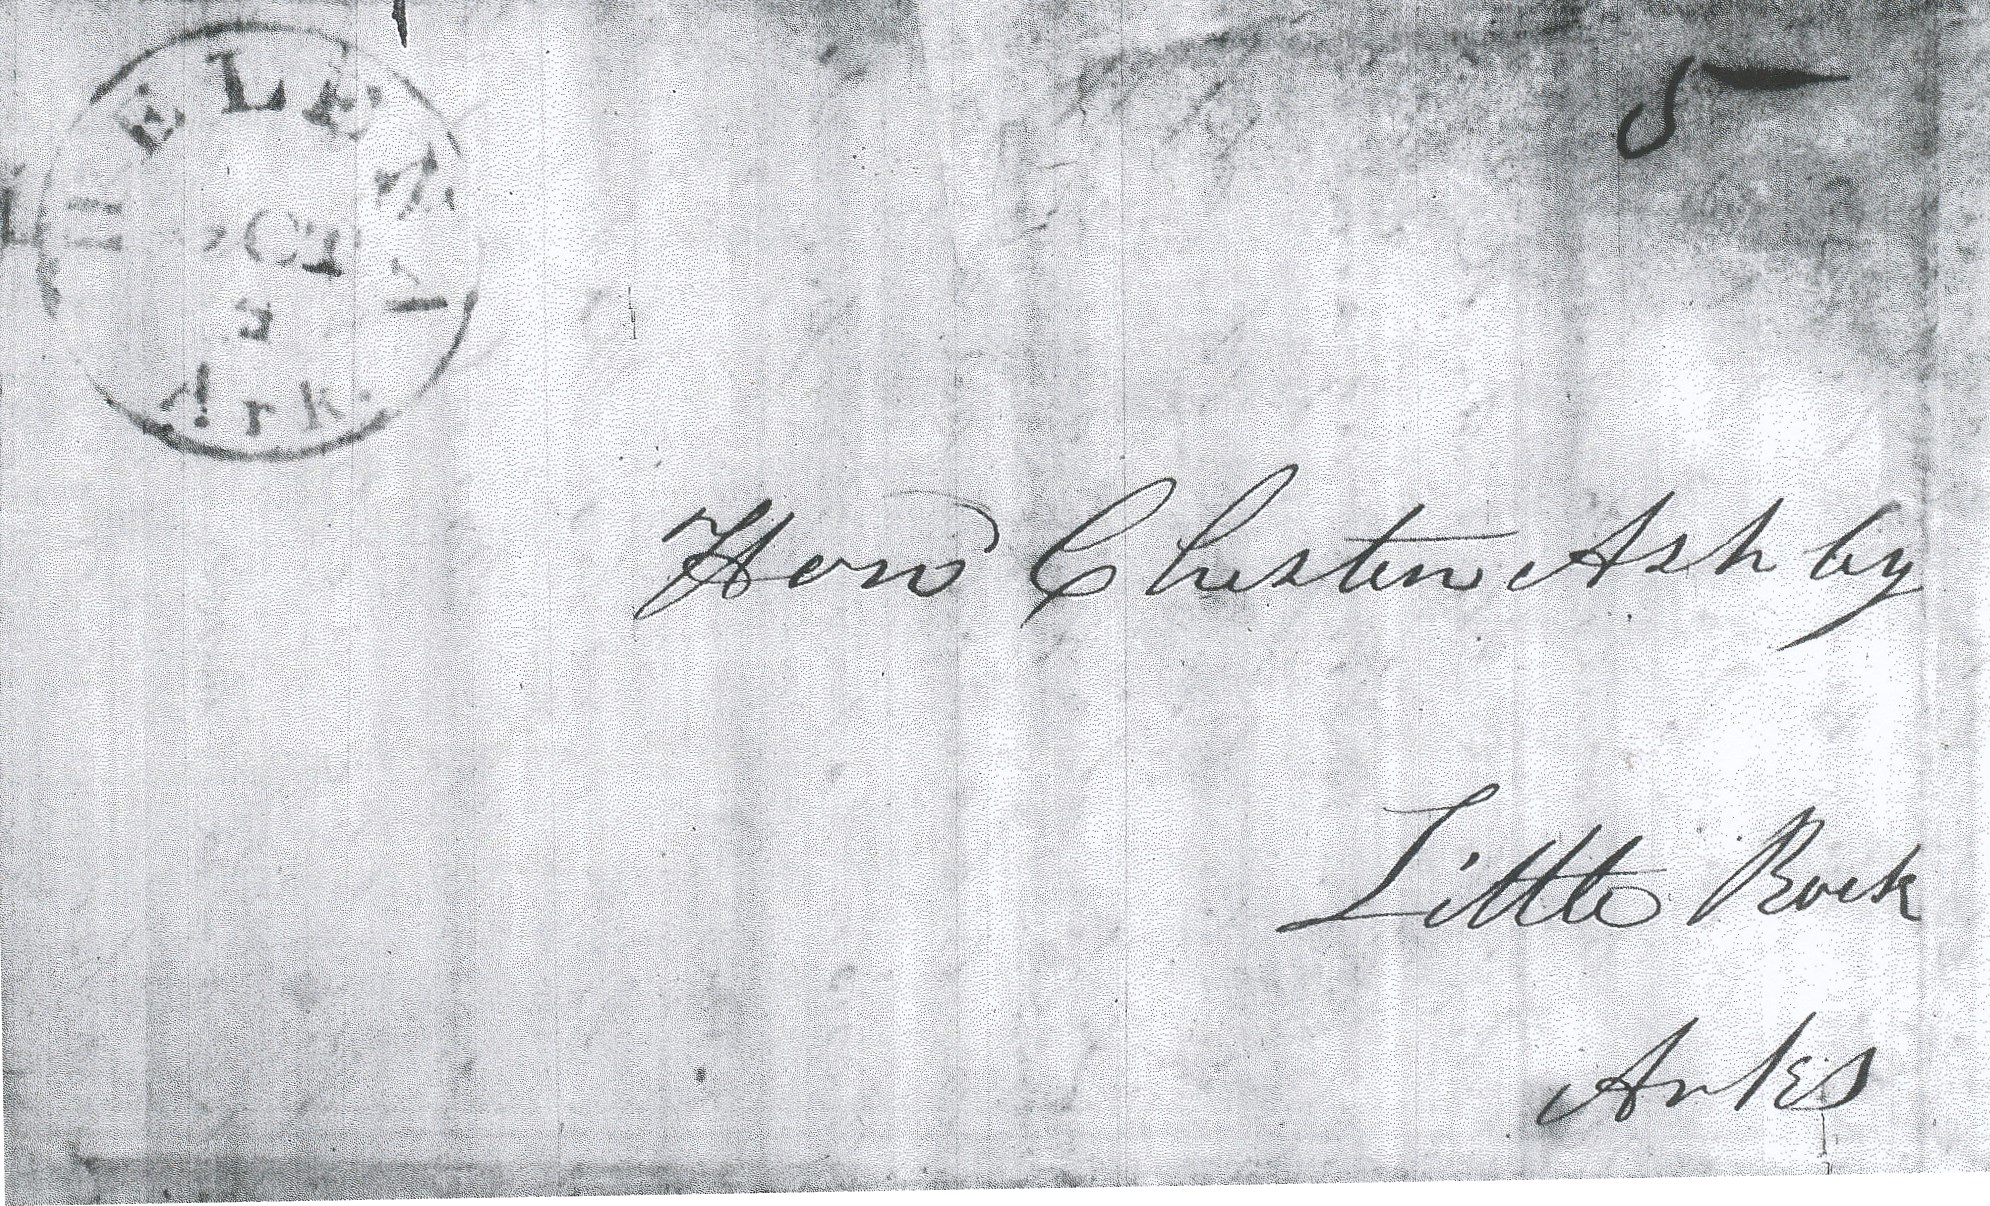 HELENA
OCT
Ark.
5
Hon Chester Ashby
Little Rock
Arks